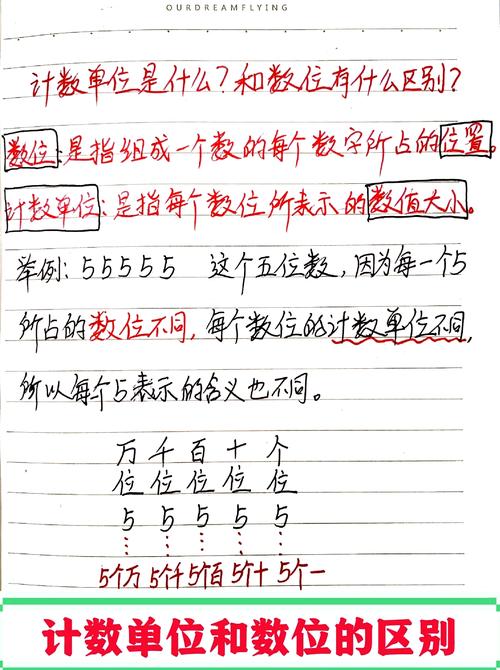 OURDREAMFLYING
计数单位是什么?和数位有什么区别?
数位:是指组成一个数的每个数字所占的位置。
计数单位:是指每个数位所表示的数值大小。
举例:55555 这个五位数,因为每一个5
所占的数位不同,每个数位的计数单位不同,
所以每个5表示的含义也不同。
万 千 百 十 个
位 位 位 位 位
5 5 5 5 5
5个万 5个千 5个百 5个十 5个一
计数单位和数位的区别